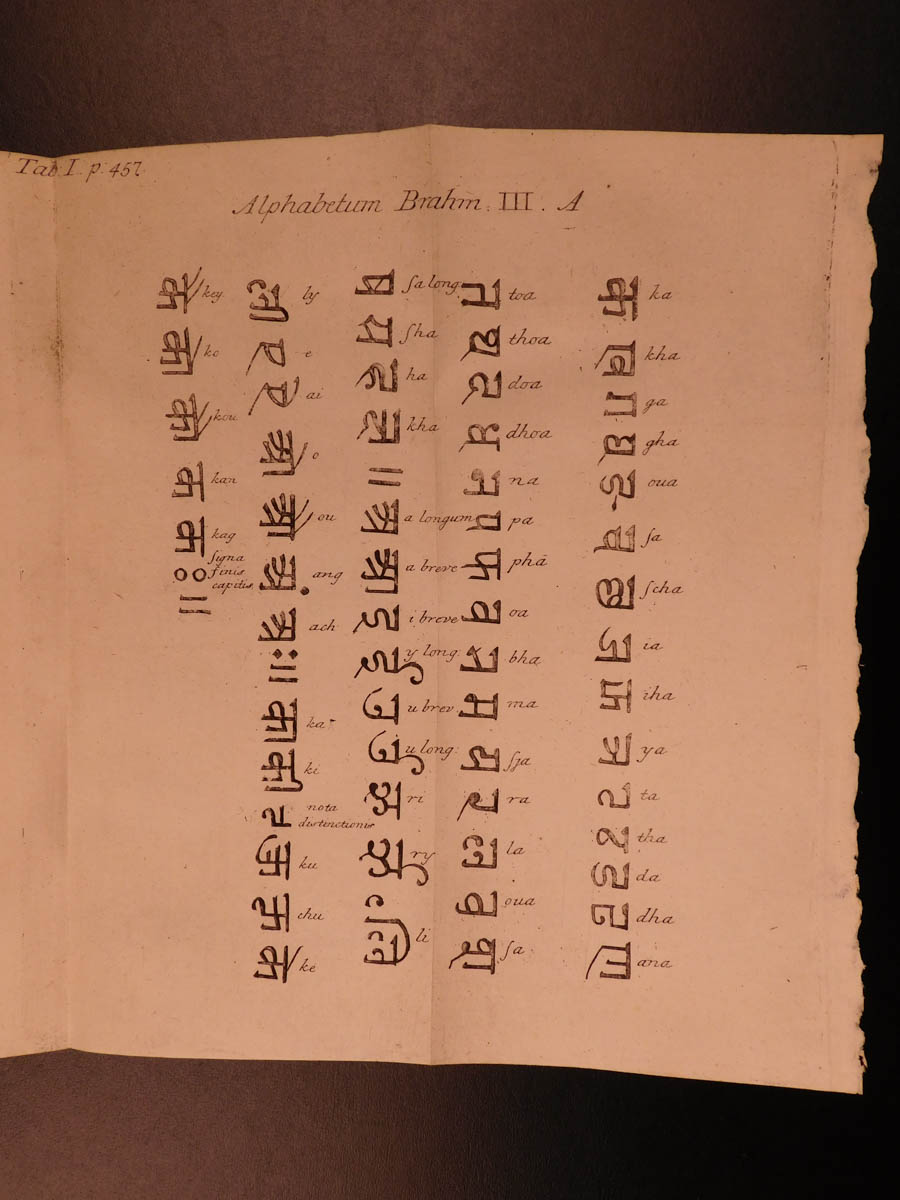 Tab I. p. 457.
Alphabetum Brahm. III. A
क ka
ख kha
ग ga
घ gha
ङ oua
च ſa
छ ſcha
ज ia
झ iha
ञ ya
ट ta
ठ tha
ड da
ढ dha
ण ana
त toa
थ thoa
द doa
ध dhoa
न na
प pa
फ phā
व oa
भ bha
म ma
य ſja
र ra
ल la
व oua
श ſa
ष ſa long.
स ſha
ह ha
क्ष kha
॥
अ a longum
आ a breve
इ i breve
ई y long.
उ u brev.
ऊ u long:
ऋ ri
ॠ ry
ऌ li
ॡ ly
ए e
ऐ ai
ओ o
औ ou
अं ang
अः॥ ach
का ka
की ki
nota
distinctionis
कु ku
कू chu
के ke
कै key
को ko
कौ kou
कं kan
कः kag
ſigna
finis
capitis
॥